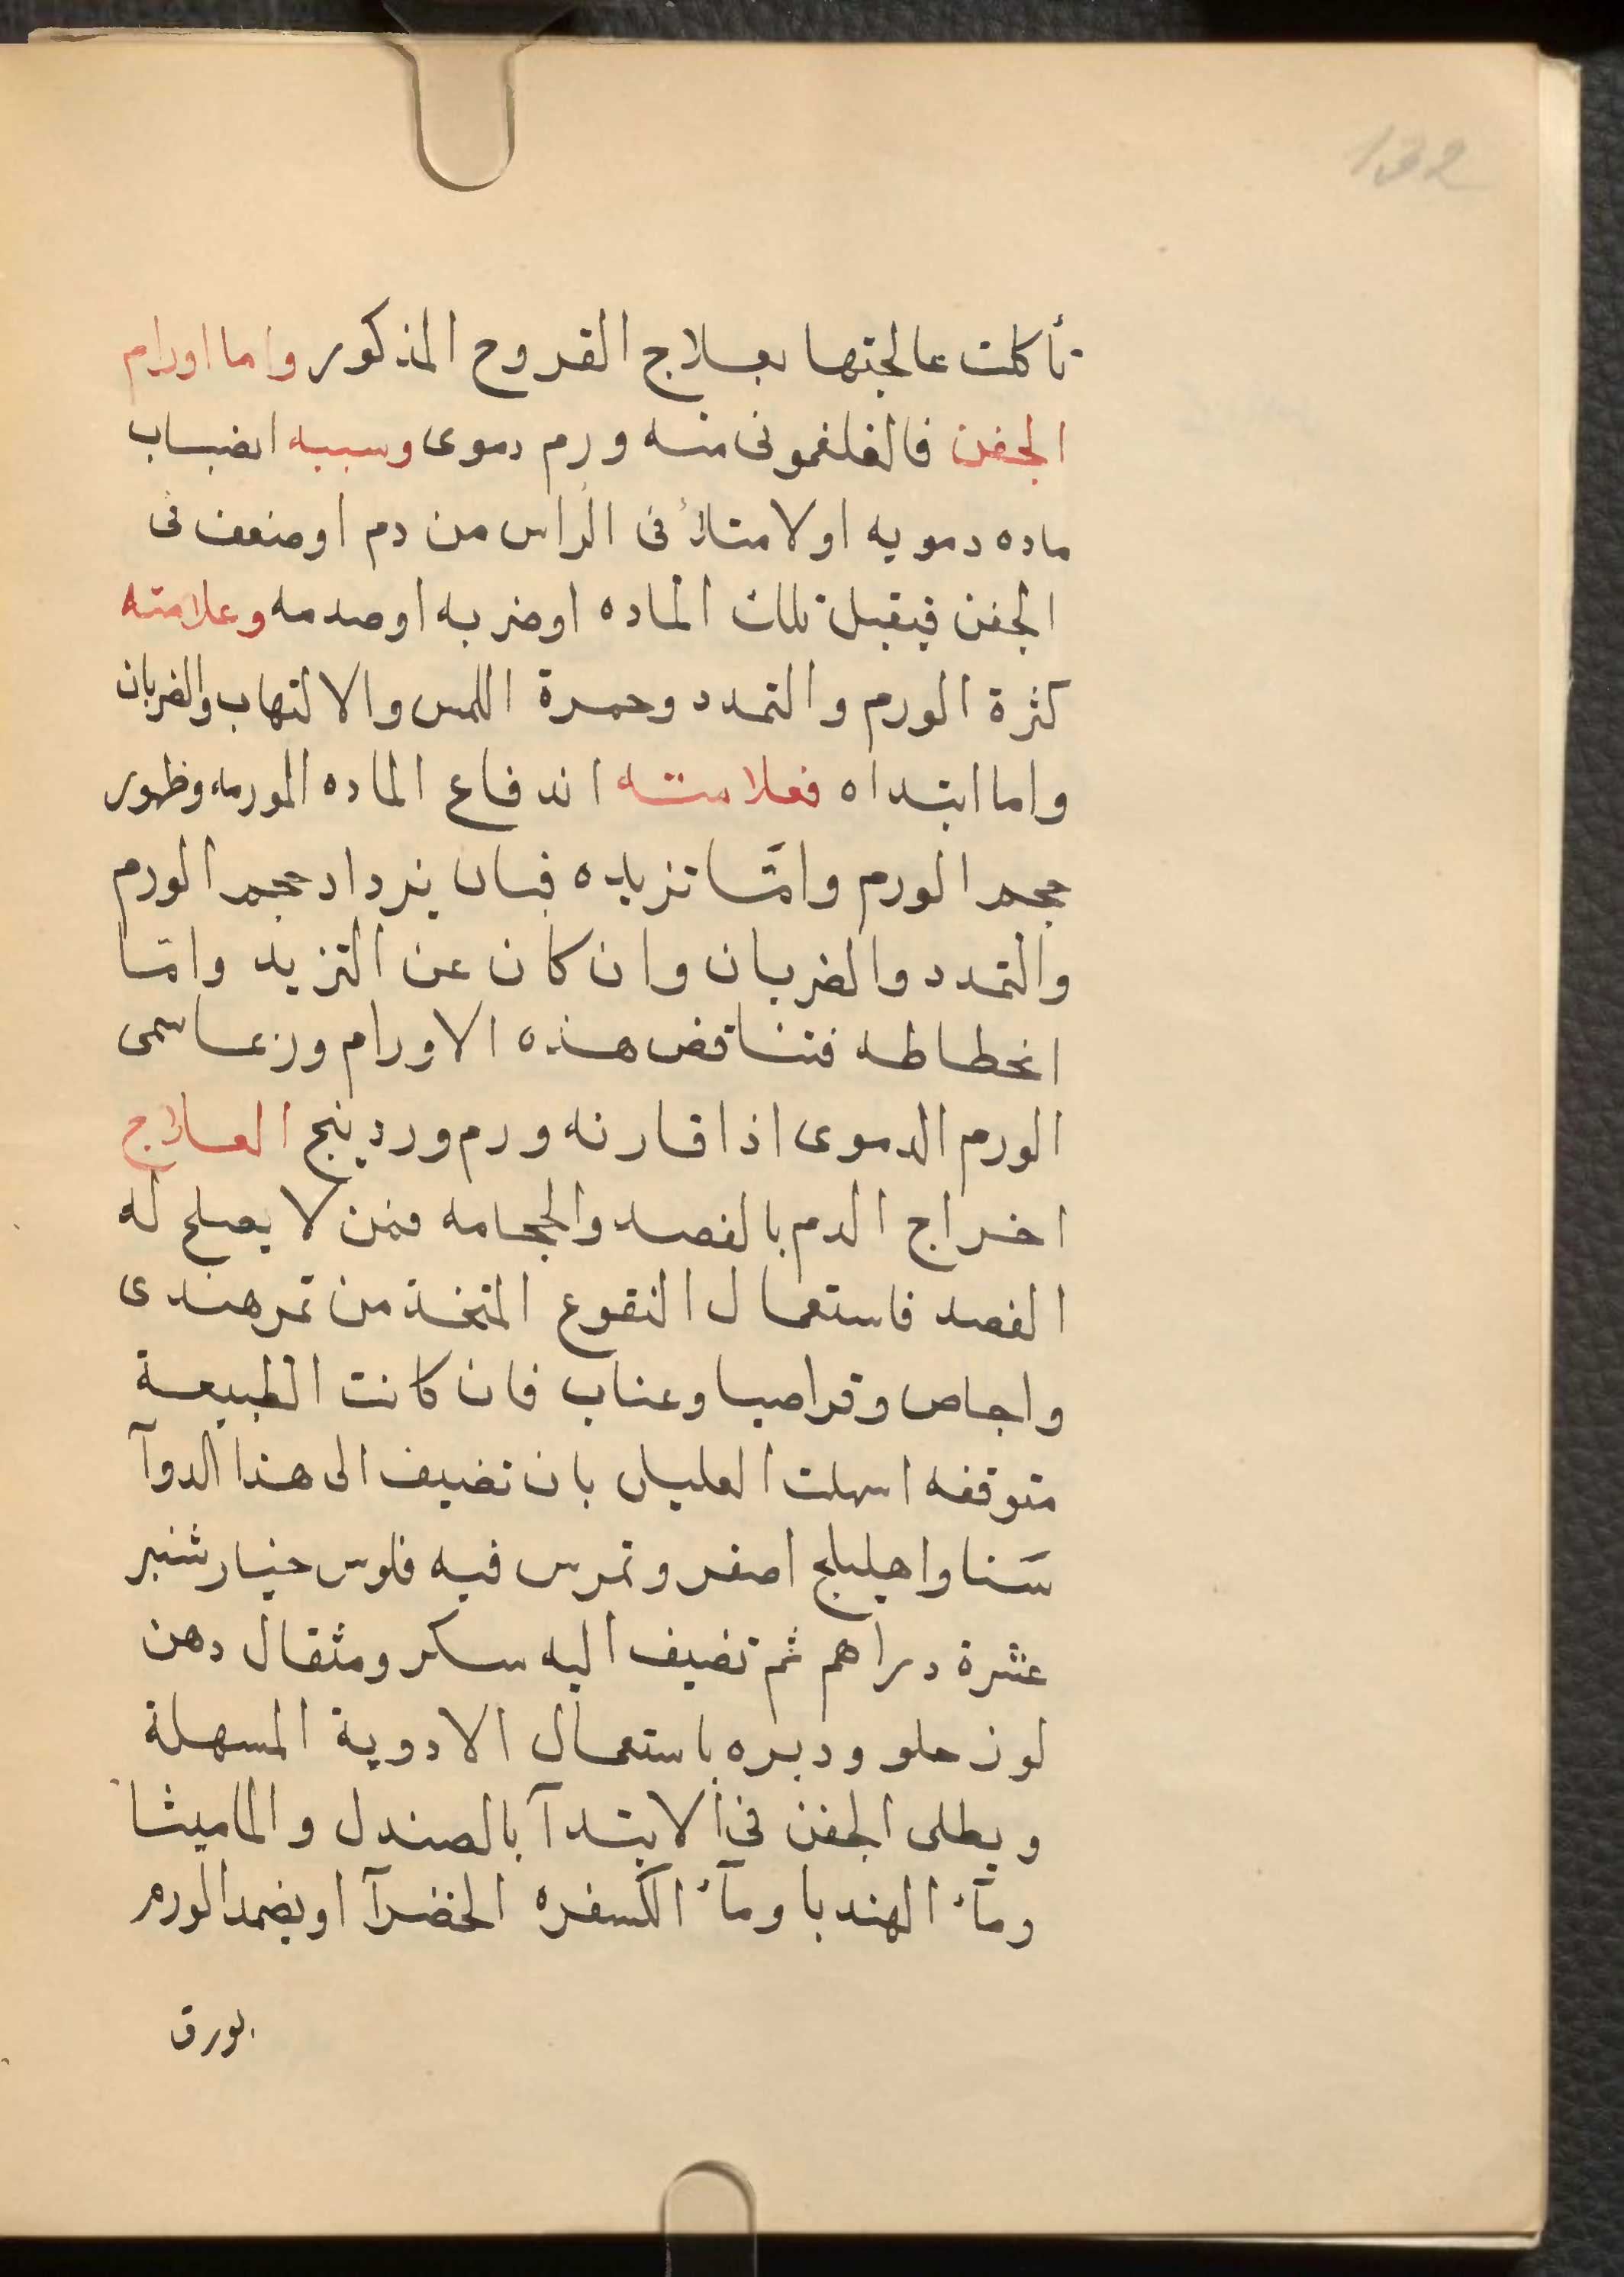 132
تأكلت عالجتها بعلاج القروح المذكور واما اورام
الجفن فالفلغمونى منه ورم دموى وسببه انصباب
ماده دمويه او لامتلأ فى الراس من دم او ضعف فى
الجفن فيقبل تلك الماده او ضربه او صدمه وعلامته
كثرة الورم والتمدد وحمرة اللمس والالتهاب والضربان
واما ابتداه فعلامته اندفاع الماده المورمه وظهور
حجم الورم وامّا تزيده فبان يزداد حجم الورم
والتمدد والضربان وان كان عن التزيد وامّا
انحطاطه فتناقص هذه الاورام وربما سمى
الورم الدموى اذا قارنه ورم وردينج العلاج
اخراج الدم بالفصد والحجامه فمن لا يصلح له
الفصد فاستعمال النقوع المتخذ من تمرهندى
واجاص وقراصيا وعناب فان كانت الطبيعة
متوقفه اسهلت العليل بان تضيف الى هذا الدوآ
سَنا واهليلج اصفر وتمرس فيه فلوس خيارشنبر
عشرة دراهم ثم تضيف اليه سكر ومثقال دهن
لوز حلو ودبره باستعمال الادوية المسهلة
ويطلى الجفن فى الابتدآ بالصندل والماميثا
ومآء الهندبا ومآء الكسفره الخضرآ او يضمد الورم
بورق